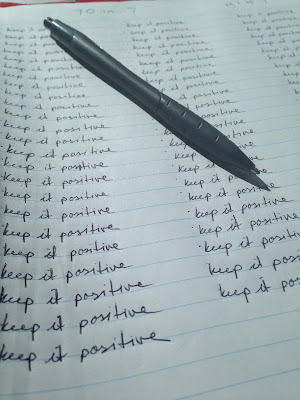 70 in 7
keep it positive
keep it positive
keep it positive
keep it positive
keep it positive
keep it positive
keep it positive
keep it positive
keep it positive
keep it positive
keep it positive
keep it positive
keep it positive
keep it positive
keep it positive
keep it positive
keep it positive
keep it positive
keep it positive
keep it positive
keep it positive
keep it positive
keep it positive
keep it positive
keep it positive
keep it positive
keep it positive
keep it
keep it
keep it positive
keep it positive
keep it positive
keep it positive
keep it
keep it